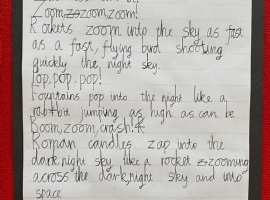 Zoom, zoom, zoom!
Rockets zoom into the sky as fast
as a fast, flying bird shooting
quickly the, night sky.
Pop, pop, pop!
Fountains pop into the night like a
rabbit jumping as high as can be
Boom, zoom, crash!
Roman candles zap into the
dark, night sky like a rocket zooming
across the dark, night sky and into
space